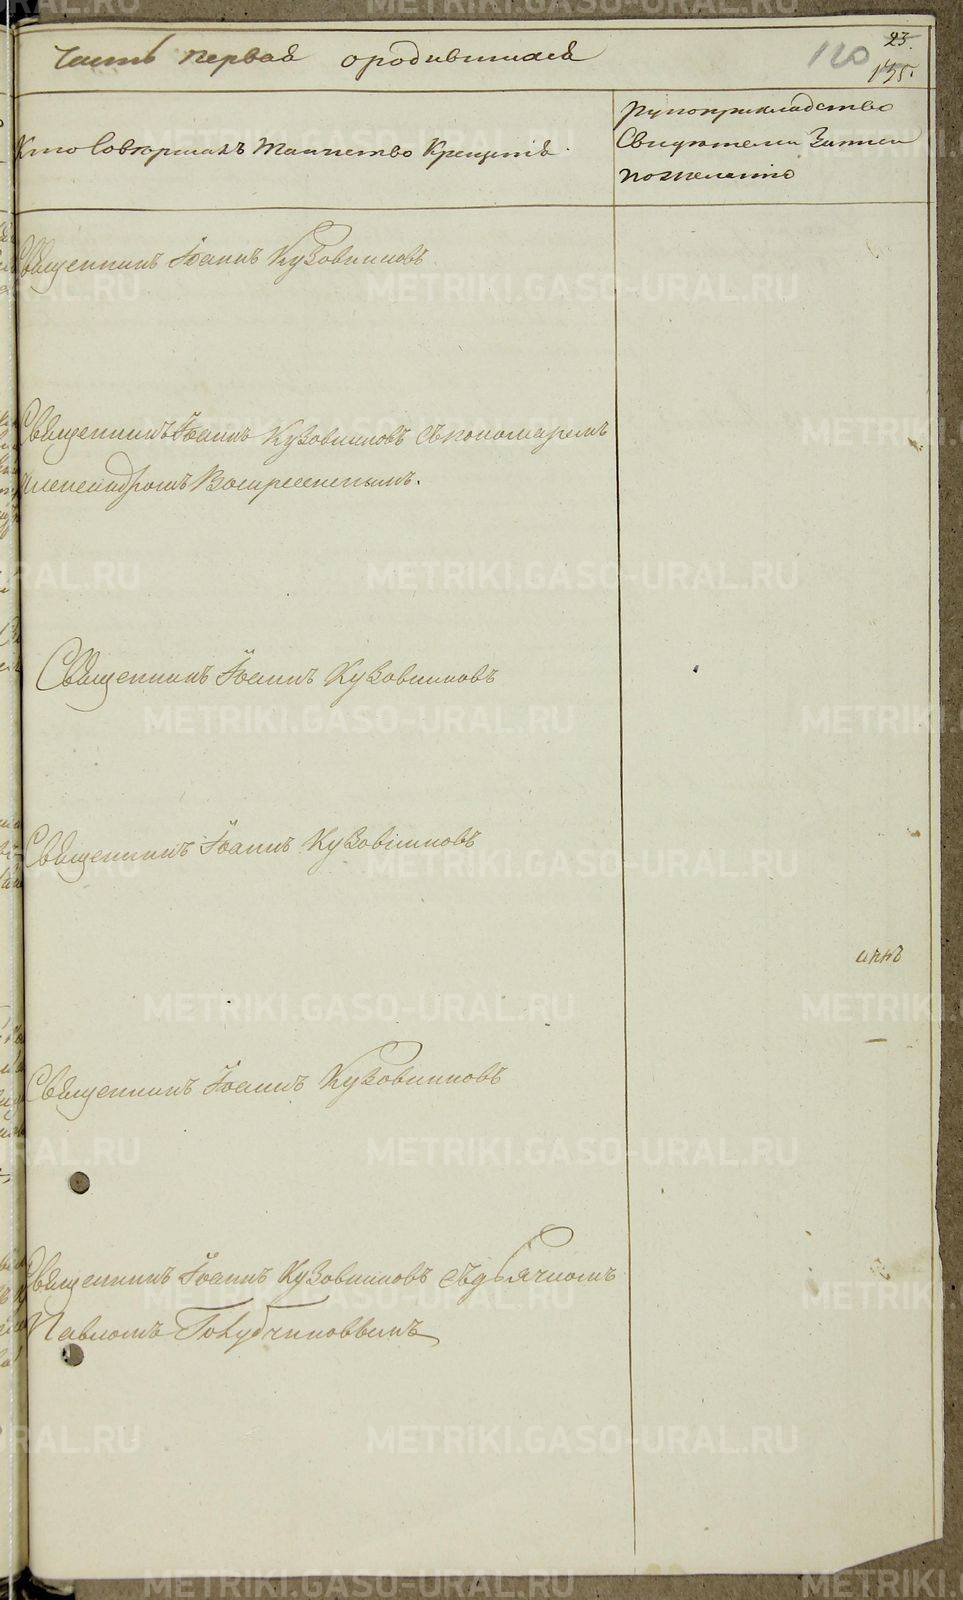 Часть первая о родившихся
120
23.
135.
Кто Совершалъ Таинство Крещенія.
Рукоприкладство
Свидѣтелей Записи
по желанію
Священникъ Іоаннъ Кузовниковъ
Священникъ Іоаннъ Кузовниковъ съ пономаремъ
Александромъ Воскресенскимъ.
Священникъ Іоаннъ Кузовниковъ
Священникъ Іоаннъ Кузовниковъ
Священникъ Іоаннъ Кузовниковъ
Священникъ Іоаннъ Кузовниковъ съ дьячкомъ
Павломъ Голубчиковымъ
METRIKI.GASO-URAL.RU